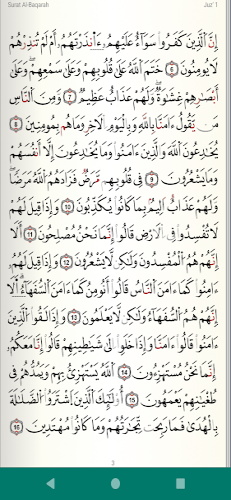 Surat Al-Baqarah Juz' 1
إِنَّ ٱلَّذِينَ كَفَرُوا۟ سَوَآءٌ عَلَيْهِمْ ءَأَنذَرْتَهُمْ أَمْ لَمْ تُنذِرْهُمْ
لَا يُؤْمِنُونَ ٦ خَتَمَ ٱللَّهُ عَلَىٰ قُلُوبِهِمْ وَعَلَىٰ سَمْعِهِمْ وَعَلَىٰٓ
أَبْصَـٰرِهِمْ غِشَـٰوَةٌ وَلَهُمْ عَذَابٌ عَظِيمٌ ٧ وَمِنَ ٱلنَّاسِ
مَن يَقُولُ ءَامَنَّا بِٱللَّهِ وَبِٱلْيَوْمِ ٱلْـَٔاخِرِ وَمَا هُم بِمُؤْمِنِينَ ٨
يُخَـٰدِعُونَ ٱللَّهَ وَٱلَّذِينَ ءَامَنُوا۟ وَمَا يَخْدَعُونَ إِلَّآ أَنفُسَهُمْ
وَمَا يَشْعُرُونَ ٩ فِى قُلُوبِهِم مَّرَضٌ فَزَادَهُمُ ٱللَّهُ مَرَضًا
وَلَهُمْ عَذَابٌ أَلِيمٌۢ بِمَا كَانُوا۟ يَكْذِبُونَ ١٠ وَإِذَا قِيلَ لَهُمْ
لَا تُفْسِدُوا۟ فِى ٱلْأَرْضِ قَالُوٓا۟ إِنَّمَا نَحْنُ مُصْلِحُونَ ١١ أَلَآ
إِنَّهُمْ هُمُ ٱلْمُفْسِدُونَ وَلَـٰكِن لَّا يَشْعُرُونَ ١٢ وَإِذَا قِيلَ لَهُمْ
ءَامِنُوا۟ كَمَآ ءَامَنَ ٱلنَّاسُ قَالُوٓا۟ أَنُؤْمِنُ كَمَآ ءَامَنَ ٱلسُّفَهَآءُ أَلَآ
إِنَّهُمْ هُمُ ٱلسُّفَهَآءُ وَلَـٰكِن لَّا يَعْلَمُونَ ١٣ وَإِذَا لَقُوا۟ ٱلَّذِينَ
ءَامَنُوا۟ قَالُوٓا۟ ءَامَنَّا وَإِذَا خَلَوْا۟ إِلَىٰ شَيَـٰطِينِهِمْ قَالُوٓا۟ إِنَّا مَعَكُمْ
إِنَّمَا نَحْنُ مُسْتَهْزِءُونَ ١٤ ٱللَّهُ يَسْتَهْزِئُ بِهِمْ وَيَمُدُّهُمْ فِى
طُغْيَـٰنِهِمْ يَعْمَهُونَ ١٥ أُو۟لَـٰٓئِكَ ٱلَّذِينَ ٱشْتَرَوُا۟ ٱلضَّلَـٰلَةَ
بِٱلْهُدَىٰ فَمَا رَبِحَت تِّجَـٰرَتُهُمْ وَمَا كَانُوا۟ مُهْتَدِينَ ١٦
3